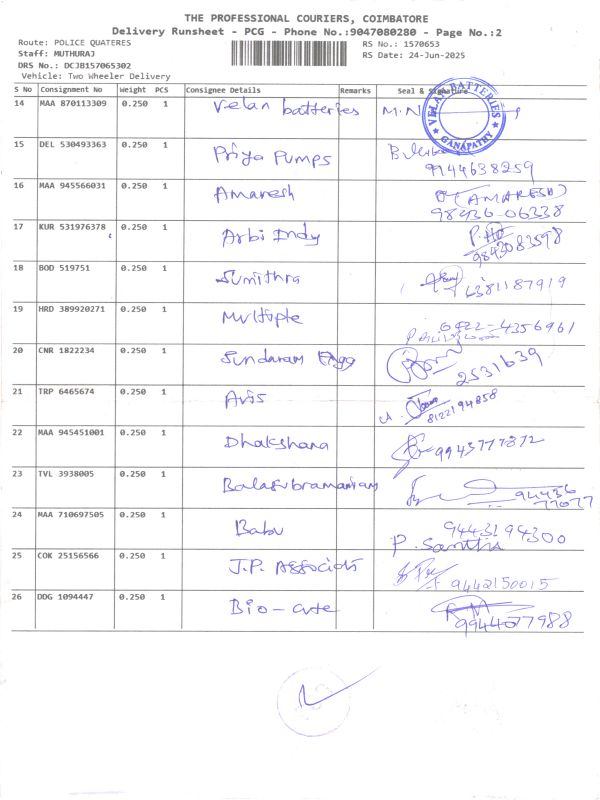 THE PROFESSIONAL COURIERS, COIMBATORE
Delivery Runsheet - PCG - Phone No.:9047080280 - Page No.:2
Route: POLICE QUATERES
RS No.: 1570653
Staff: MUTHURAJ
RS Date: 24-Jun-2025
DRS No.: DCJB157065302
Vehicle: Two Wheeler Delivery
S No Consignment No Weight PCS Consignee Details Remarks Seal & Signature
14 MAA 870113309 0.250 1 Velan batteries M.N
VELAN BATTERIES
GANAPATHY
15 DEL 530493363 0.250 1 Priya Pumps
9944638259
16 MAA 945566031 0.250 1 Amaresh (AMARESH)
98436-06338
17 KUR 531976378 0.250 1 Arbi Indy
9843083598
18 BOD 519751 0.250 1 Sumithra 6381187919
19 HRD 389920271 0.250 1 Multiple 0422-4356961
20 CNR 1822234 0.250 1 Sundaram Engg
2531639
21 TRP 6465674 0.250 1 Avis
8122194858
22 MAA 945451001 0.250 1 Dhakshana 9943777872
23 TVL 3938005 0.250 1 Balasubramaniam 94436
77077
24 MAA 710697505 0.250 1 Babu 9443194300
P. Santha
25 COK 25156566 0.250 1 J.P. Associats
9442150015
26 DDG 1094447 0.250 1 Bio-cute
9944077988